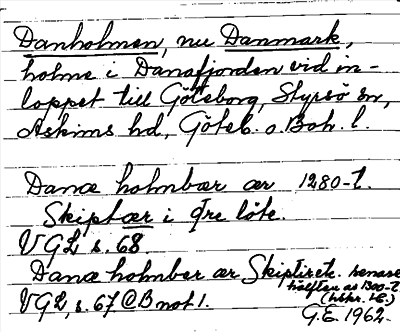 Danholmen, nu Danmark,
holme i Danafjorden vid in-
loppet till Göteborg, Styrsö sn,
Askims hd, Göteb. o. Boh. l.
Danæ holmbær ær 1280-t.
Skipbær i fre löte.
VGL s. 68.
Danæ holmber ær Skiptirek. senare
hälften av 1300-t.
VGL, s. 67 B not 1. (hskr. )
G.E. 1962.